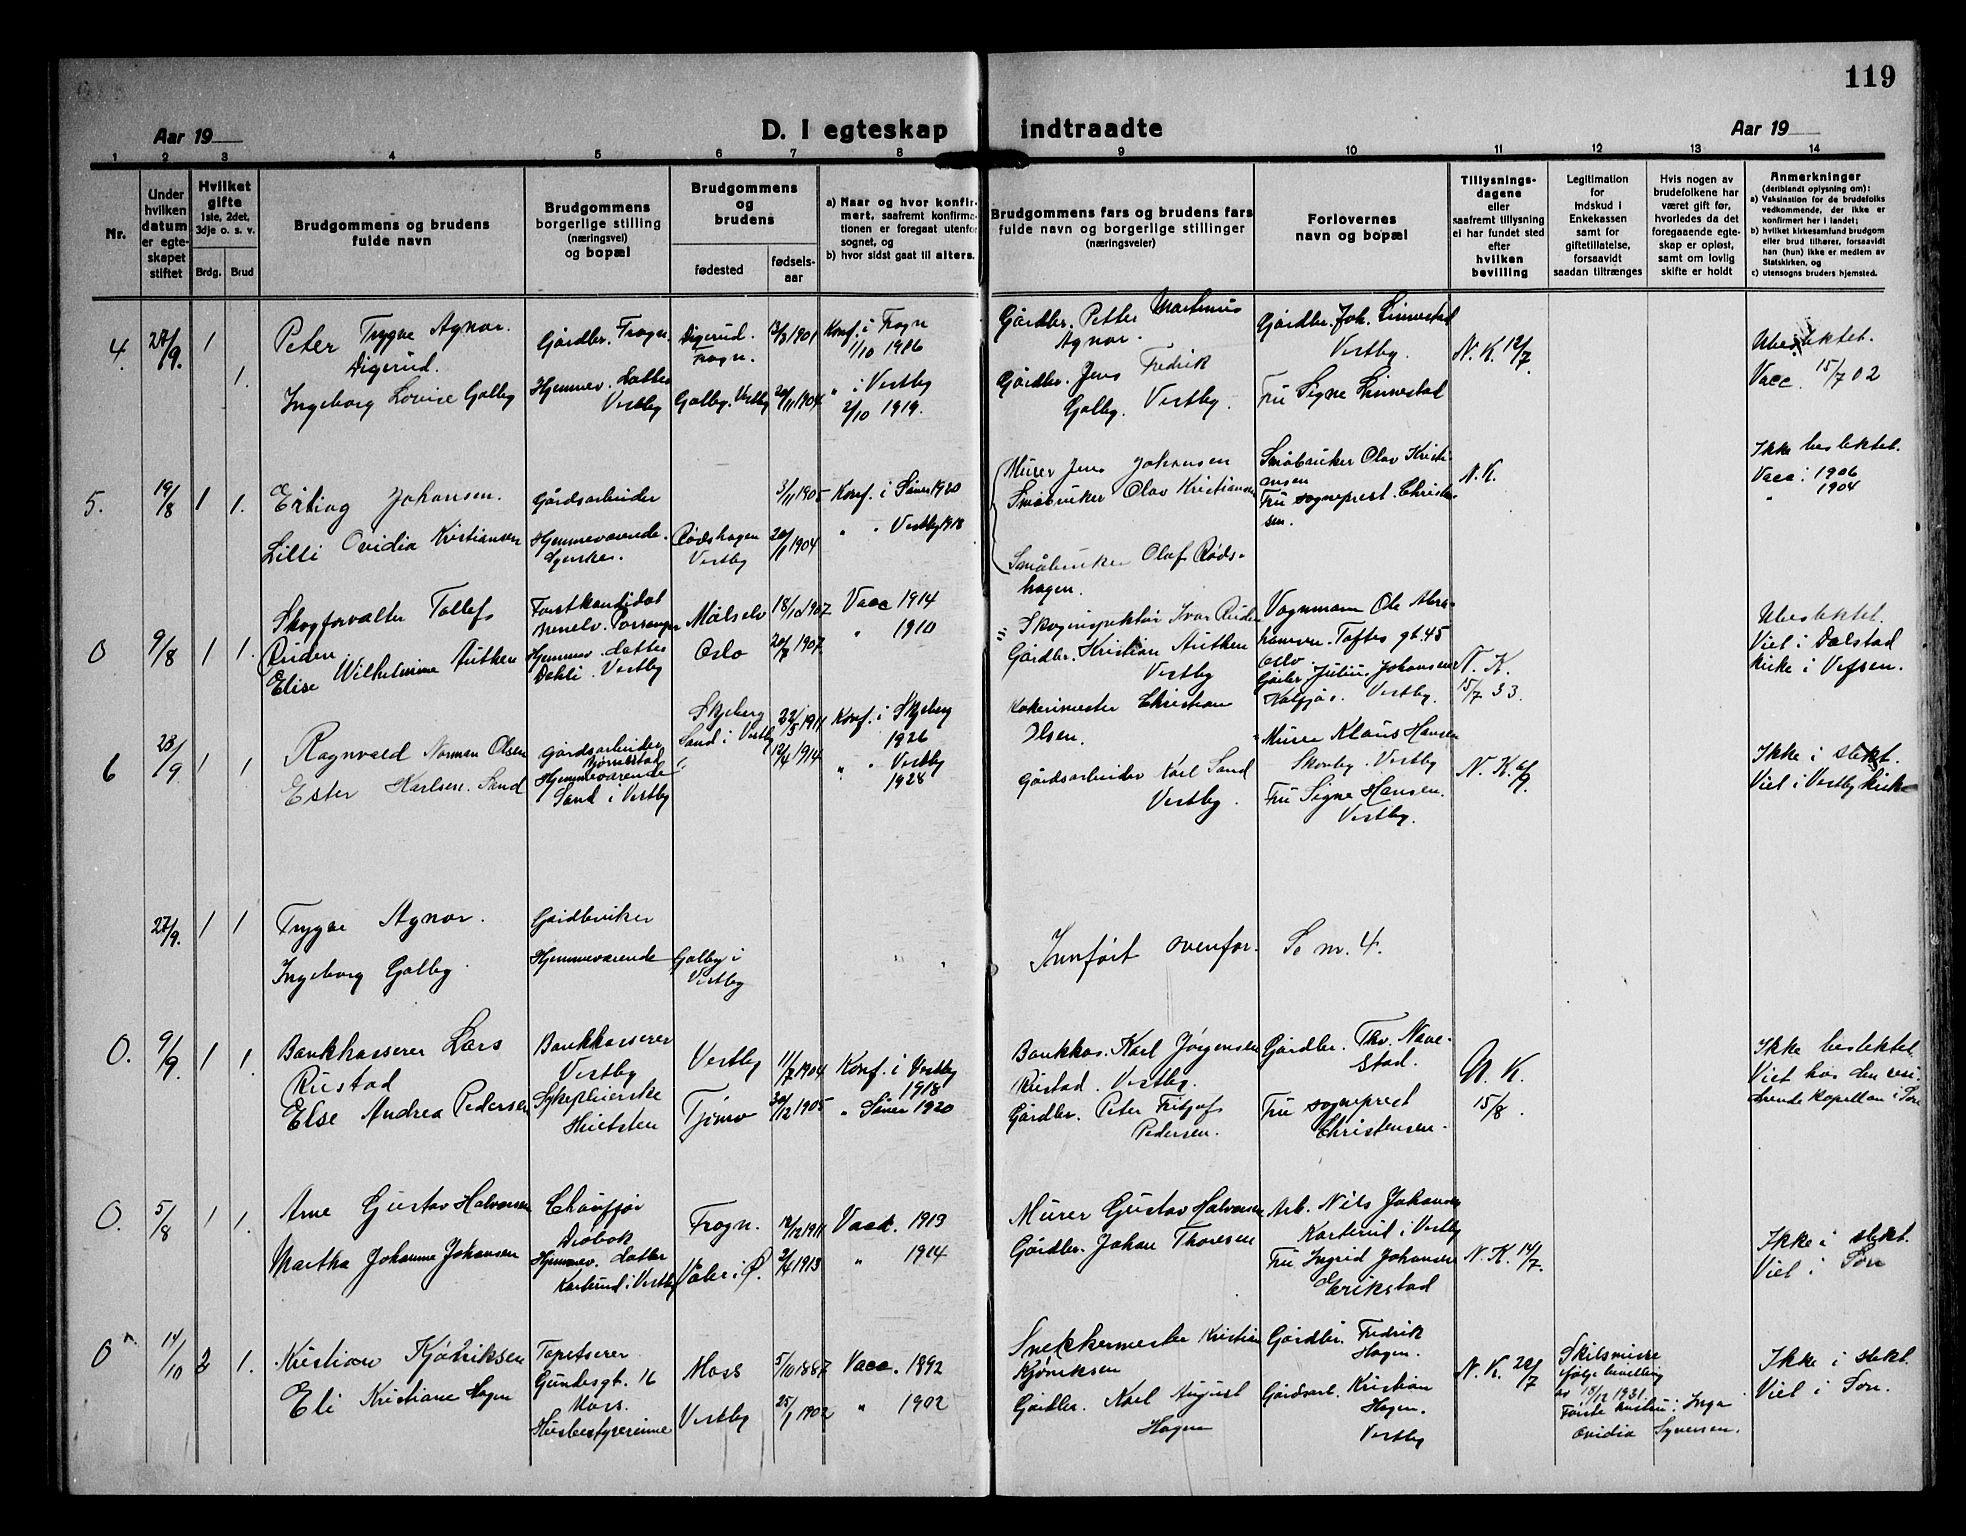 119
Aar 19
D. I egteskap indtraadte
Aar 19
1 2 3 4 5 6 7 8 9 10 11 12 13 14
Nr.
Under hvilken datum er egteskapet stiftet
Hvilket gifte 1ste, 2det, 3dje o. s. v.
Brdg. Brud
Brudgommens og brudens fulde navn
Brudgommens borgerlige stilling (næringsvei) og bopæl
Brudgommens og brudens
fødested
fødselsaar
a) Naar og hvor konfirmert, saafremt konfirmationen er foregaat utenfor sognet, og
b) hvor sidst gaat til alters.
Brudgommens fars og brudens fars fulde navn og borgerlige stillinger (næringsveier)
Forlovernes navn og bopæl
Tillysningsdagene eller saafremt tillysning ei har fundet sted efter hvilken bevilling
Legitimation for Indskud i Enkekassen samt for giftetillatelse, forsaavidt saadan tiltrænges
Hvis nogen av brudefolkene har været gift før, hvorledes da det foregaaende egteskap er opløst, samt om lovlig skifte er holdt
Anmerkninger (deriblandt oplysning om):
a) Vaksination for de brudefolks vedkommende, der ikke er konfirmert her i landet;
b) hvilket kirkesamfund brudgom eller brud tilhører, forsaavidt han (hun) ikke er medlem av Statskirken, og
c) utensogns bruders hjemsted.
4. 27/9. 1 1.
Peter Trygve Agnor.
Digerud.
Ingeborg Lovise Galby
Gårdbr. Frogn.
Hjemmev. datter
Vestby
Digerud.
Frogn.
Galby. Vestby
13/3 1901
20/11 1904
Konf. i Frogn
1/10 1916
" i Vestby
2/10 1919.
Gårdbr. Petter Martinius
Agnor.
Gårdbr. Jens Fredrik
Galby. Vestby.
Gårdbr. Joh. Linnestad
Vestby.
Fru Signe Linnestad
N. K. 12/7.
Ubeslektet.
Vacc. 15/7 02
5. 19/8 1 1.
Erling Johansen.
Lilli Ovidia Kristiansen
Gårdsarbeider
Hjemmeværende.
Syerske.
Rødshagen
Vestby
3/11 1905
20/1 1904
Konf. i Såner 1920
" " Vestby 1918
Murer Jens Johansen
Småbruker Olav Kristiansen
Småbruker Olaf Rødshagen.
Småbruker Olav Kristiansen
Fru sogneprest Christensen.
N. K.
Ikke beslektet.
Vacc: 1906
" 1904
0 9/8 1 1.
Skogforvalter Tollef
Ruden
Elise Wilhelmine Authen
Forstkandidat
Nenelv. Porsanger
Hjemmev. datter
Dehli. Vestby
Målselv
Oslo
18/10 1907
20/8 1907
Vacc 1914
" 1910
Skoginspektør Ivar Ruden
Gårdbr. Kristian Authen
Vestby
Vognmann Ole Abrahamsen. Toftes gt. 45
Oslo.
Gårbr. Julius Johansen
Kolsjøs. Vestby.
N. K.
15/7 33.
Ubeslektet.
Viet i Dolstad
kirke i Vefsen.
6 23/9 1 1
Ragnvald Norman Olsen
Ester Karlsen. Sand
Gårdsarbeider
Bjørnstad
Hjemmeværende
Sand i Vestby
Skjeberg
Sand i Vestby
22/5 1911
12/4 1914
Konf. i Skjeberg
1926
" " Vestby
1928
Kokerimester Christian
Olsen.
Gårdsarbeider Karl Sand
Vestby.
Murer Klaus Hansen
Skovby. Vestby
Fru Signe Hansen.
Vestby.
N. K. 6/9.
Ikke i slekt.
Viet i Vestby kirke
27/9. 1 1
Trygve Agnor.
Ingeborg Galby.
Gårdbruker
Hjemmeværende
Galby i
Vestby
Innført ovenfor. Se nr. 4.
0. 9/9. 1 1.
Bankkasserer Lars
Rustad
Else Andrea Pedersen
Bankkasserer
Vestby
Sykepleierske
Hvitsten
Vestby
Tjømø
11/7 1904
30/12 1905
Konf. i Vestby
1918
" Såner 1920
Bankkas. Karl Jørgensen
Rustad. Vestby.
Gårdbr. Peter Fritjof
Pedersen.
Gårdbr. Thv. Navestad.
Fru sogneprest
Christensen.
N. K.
15/8.
Ikke beslektet.
Viet hos den residerende kapellan i Son
0. 5/8 1 1.
Arne Gustav Halvorsen
Martha Johanne Johansen
Chauffør
Drøbak
Hjemmev. datter
Karterud i Vestby
Frogn.
Våler i Ø.
12/12 1911
2/4 1913
Vacc. 1913
" 1914
Murer Gustav Halvorsen
Gårdbr. Johan Thoresen
Arb. Nils Johansen
Karterud i Vestby
Fru Ingrid Johansen
Erikstad
N. K. 14/7.
Ikke i slekt.
Viet i Son
0 14/10 2 1.
Kristian Kjønriksen
Eli Kristiane Hagen
Tapetserer
Gundesgt. 16
Moss.
Husbestyrerinne
Moss
Vestby
5/10 1887
25/1 1902
Vacc. 1892
" 1902
Snekkermester Kristian
Kjønriksen
Gårdbr. Karl August
Hagen
Gårdbr. Fredrik
Hagen.
Gårdsarb. Kristian
Hagen.
Vestby
N. K. 22/7
Skilsmisse
ifølge bevilling
av 15/12 1931.
Første hustru: Inga
Ovidia Syversen.
Ikke i slekt.
Viet i Son.